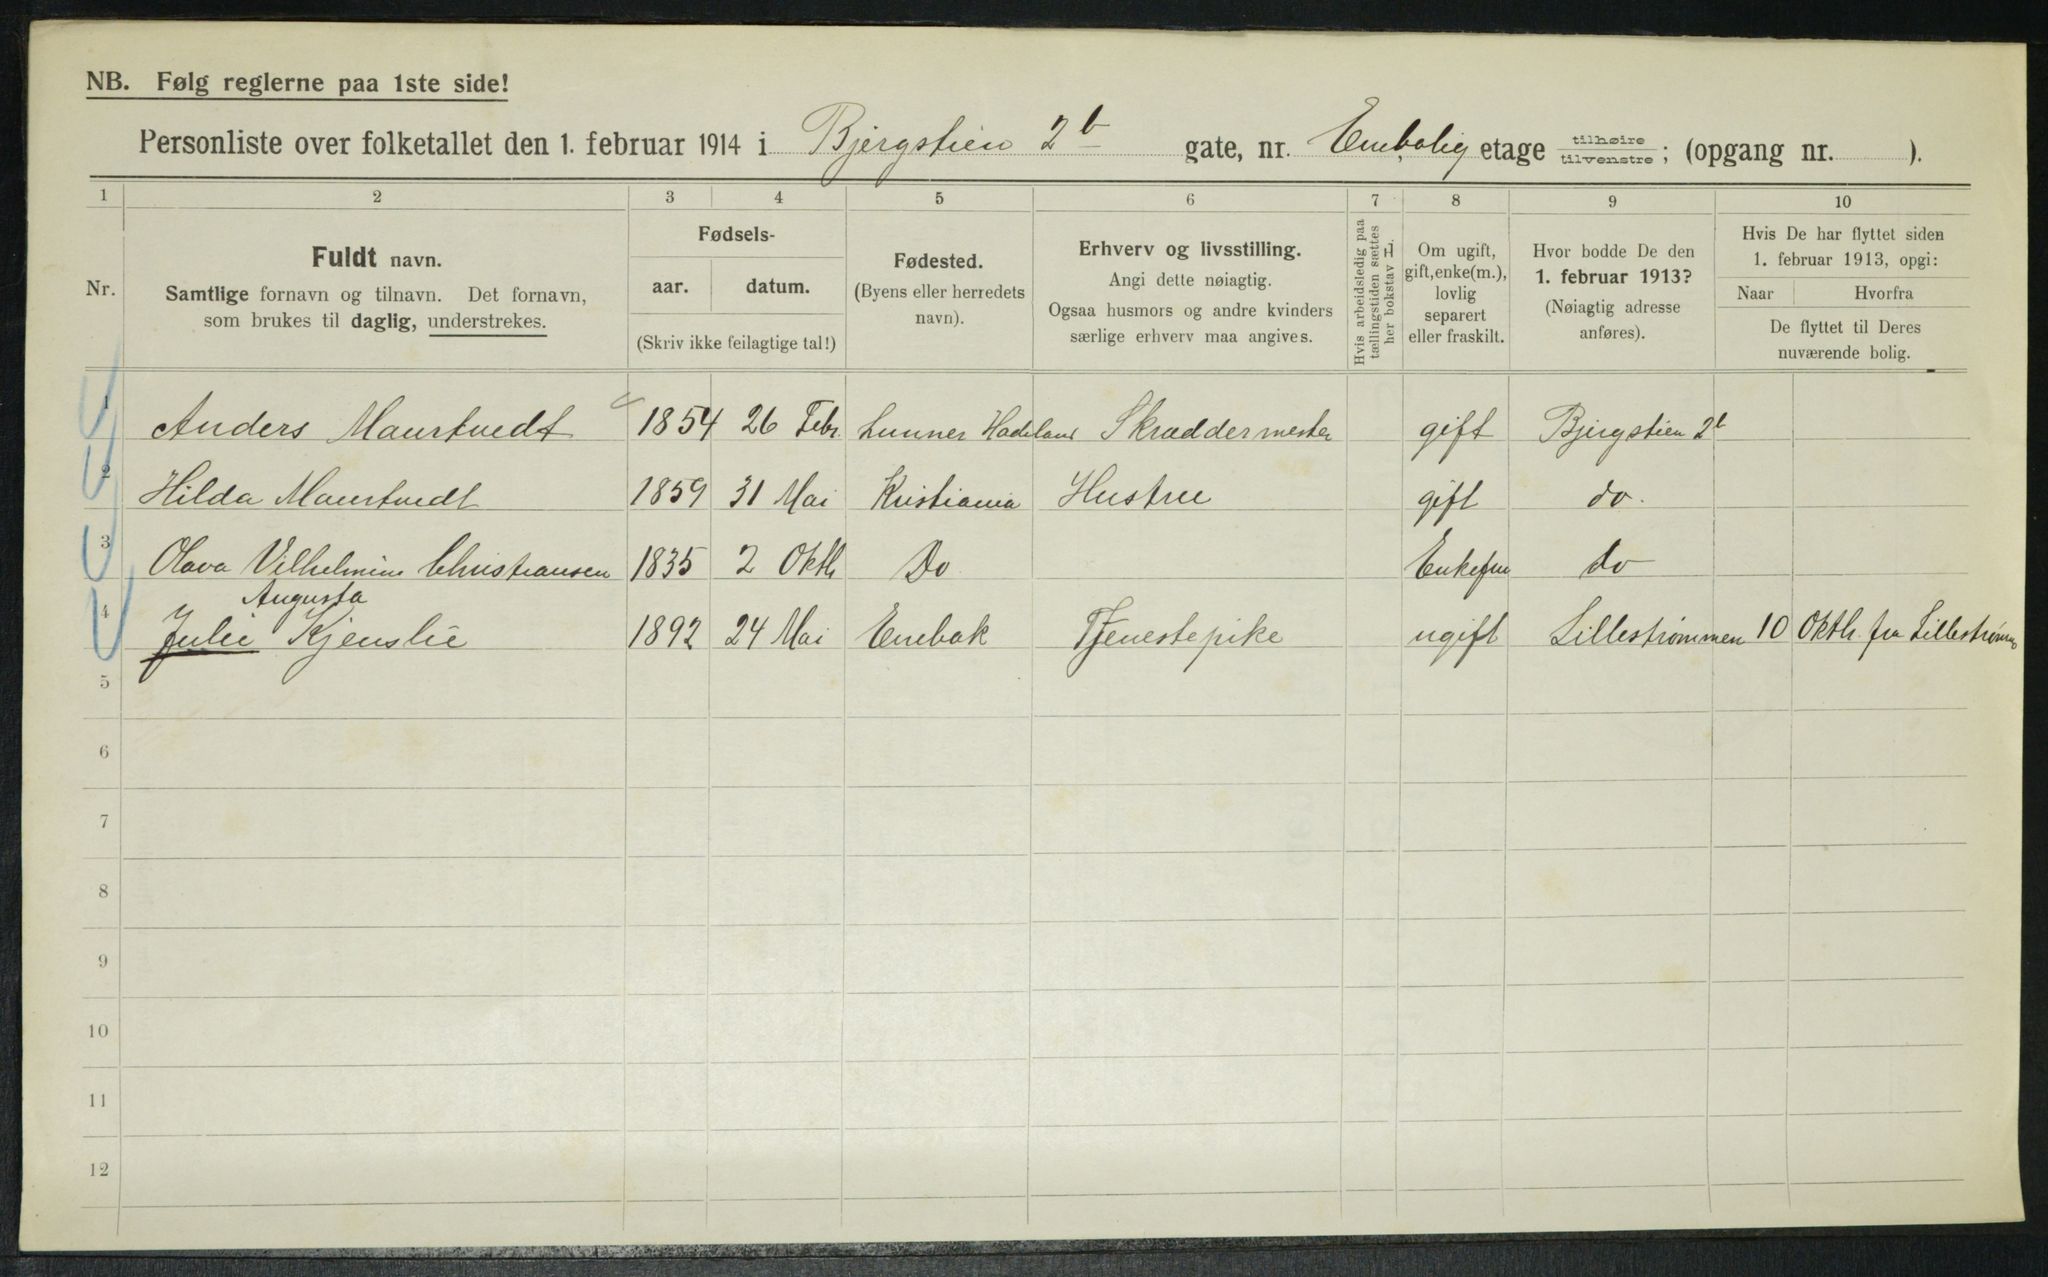 NB. Følg reglerne paa 1ste side!
Personliste over folketallet den 1. februar 1914 i Bjergstien 2b gate, nr. Enebolig etage tilhøire tilvenstre; (opgang nr. ).
1 2 3 4 5 6 7 8 9 10
Nr.
Fuldt navn.
Samtlige fornavn og tilnavn. Det fornavn,
som brukes til daglig, understrekes.
Fødsels-
aar. datum.
(Skriv ikke feilagtige tal!)
Fødested.
(Byens eller herredets
navn).
Erhverv og livsstilling.
Angi dette nøiagtig.
Ogsaa husmors og andre kvinders
særlige erhverv maa angives.
Hvis arbeidsledig paa
tællingstiden sættes
her bokstav L
Om ugift,
gift, enke(m.),
lovlig
separert
eller fraskilt.
Hvor bodde De den
1. februar 1913?
(Nøiagtig adresse
anføres).
Hvis De har flyttet siden
1. februar 1913, opgi:
Naar Hvorfra
De flyttet til Deres
nuværende bolig.
1 Anders Maurtvedt 1854 26 Febr Lunner Hadeland Skræddermester gift Bjergstien 2b
2 Hilda Maurtvedt 1859 31 Mai Kristiania Hustru gift do.
3 Olava Vilhelmine Christiansen 1835 2 Oktb Do Enkefru do
Augusta
4 Julie Kjenslie 1892 24 Mai Enebak Tjenestepike ugift Lillestrømmen 10 Oktb. fra Lillestrømmen
5
6
7
8
9
10
11
12